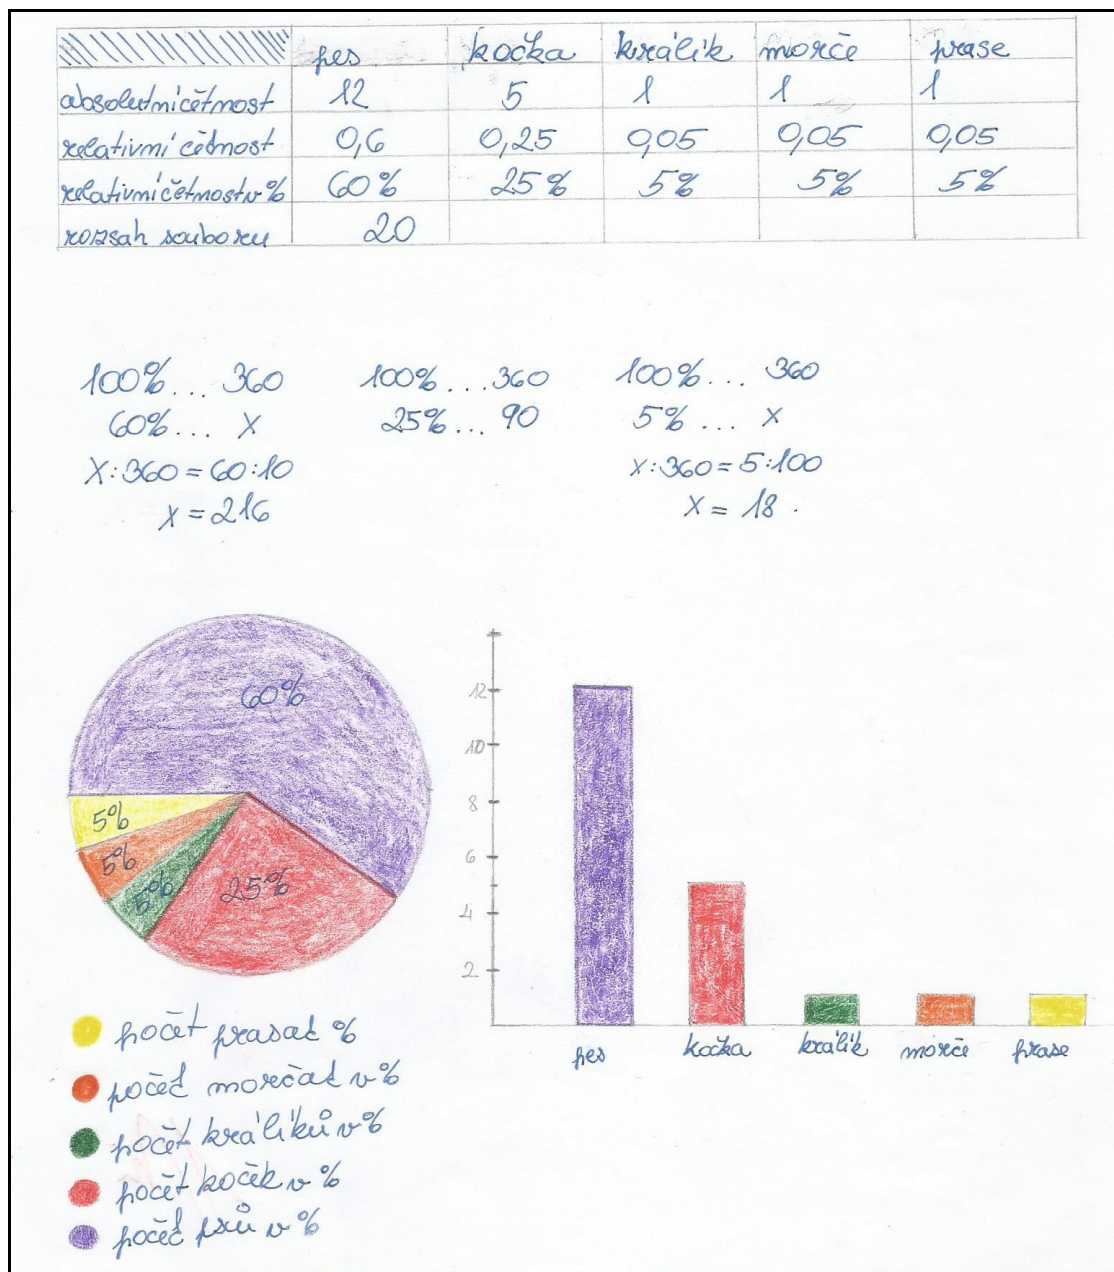 pes kočka králík morče prase
absolutní četnost 12 5 1 1 1
relativní četnost 0,6 0,25 0,05 0,05 0,05
relativní četnost v % 60% 25% 5% 5% 5%
rozsah souboru 20
100% ... 360 100% ... 360 100% ... 360
60% ... X 25% ... 90 5% ... X
X:360 = 60:10 X:360 = 5:100
X = 216 X = 18.
60%
5%
5%
5%
25%
12
10
8
6
4
2
pes kočka králík morče prase
počet prasat %
počet morčat v %
počet králíků v %
počet koček v %
počet psů v %